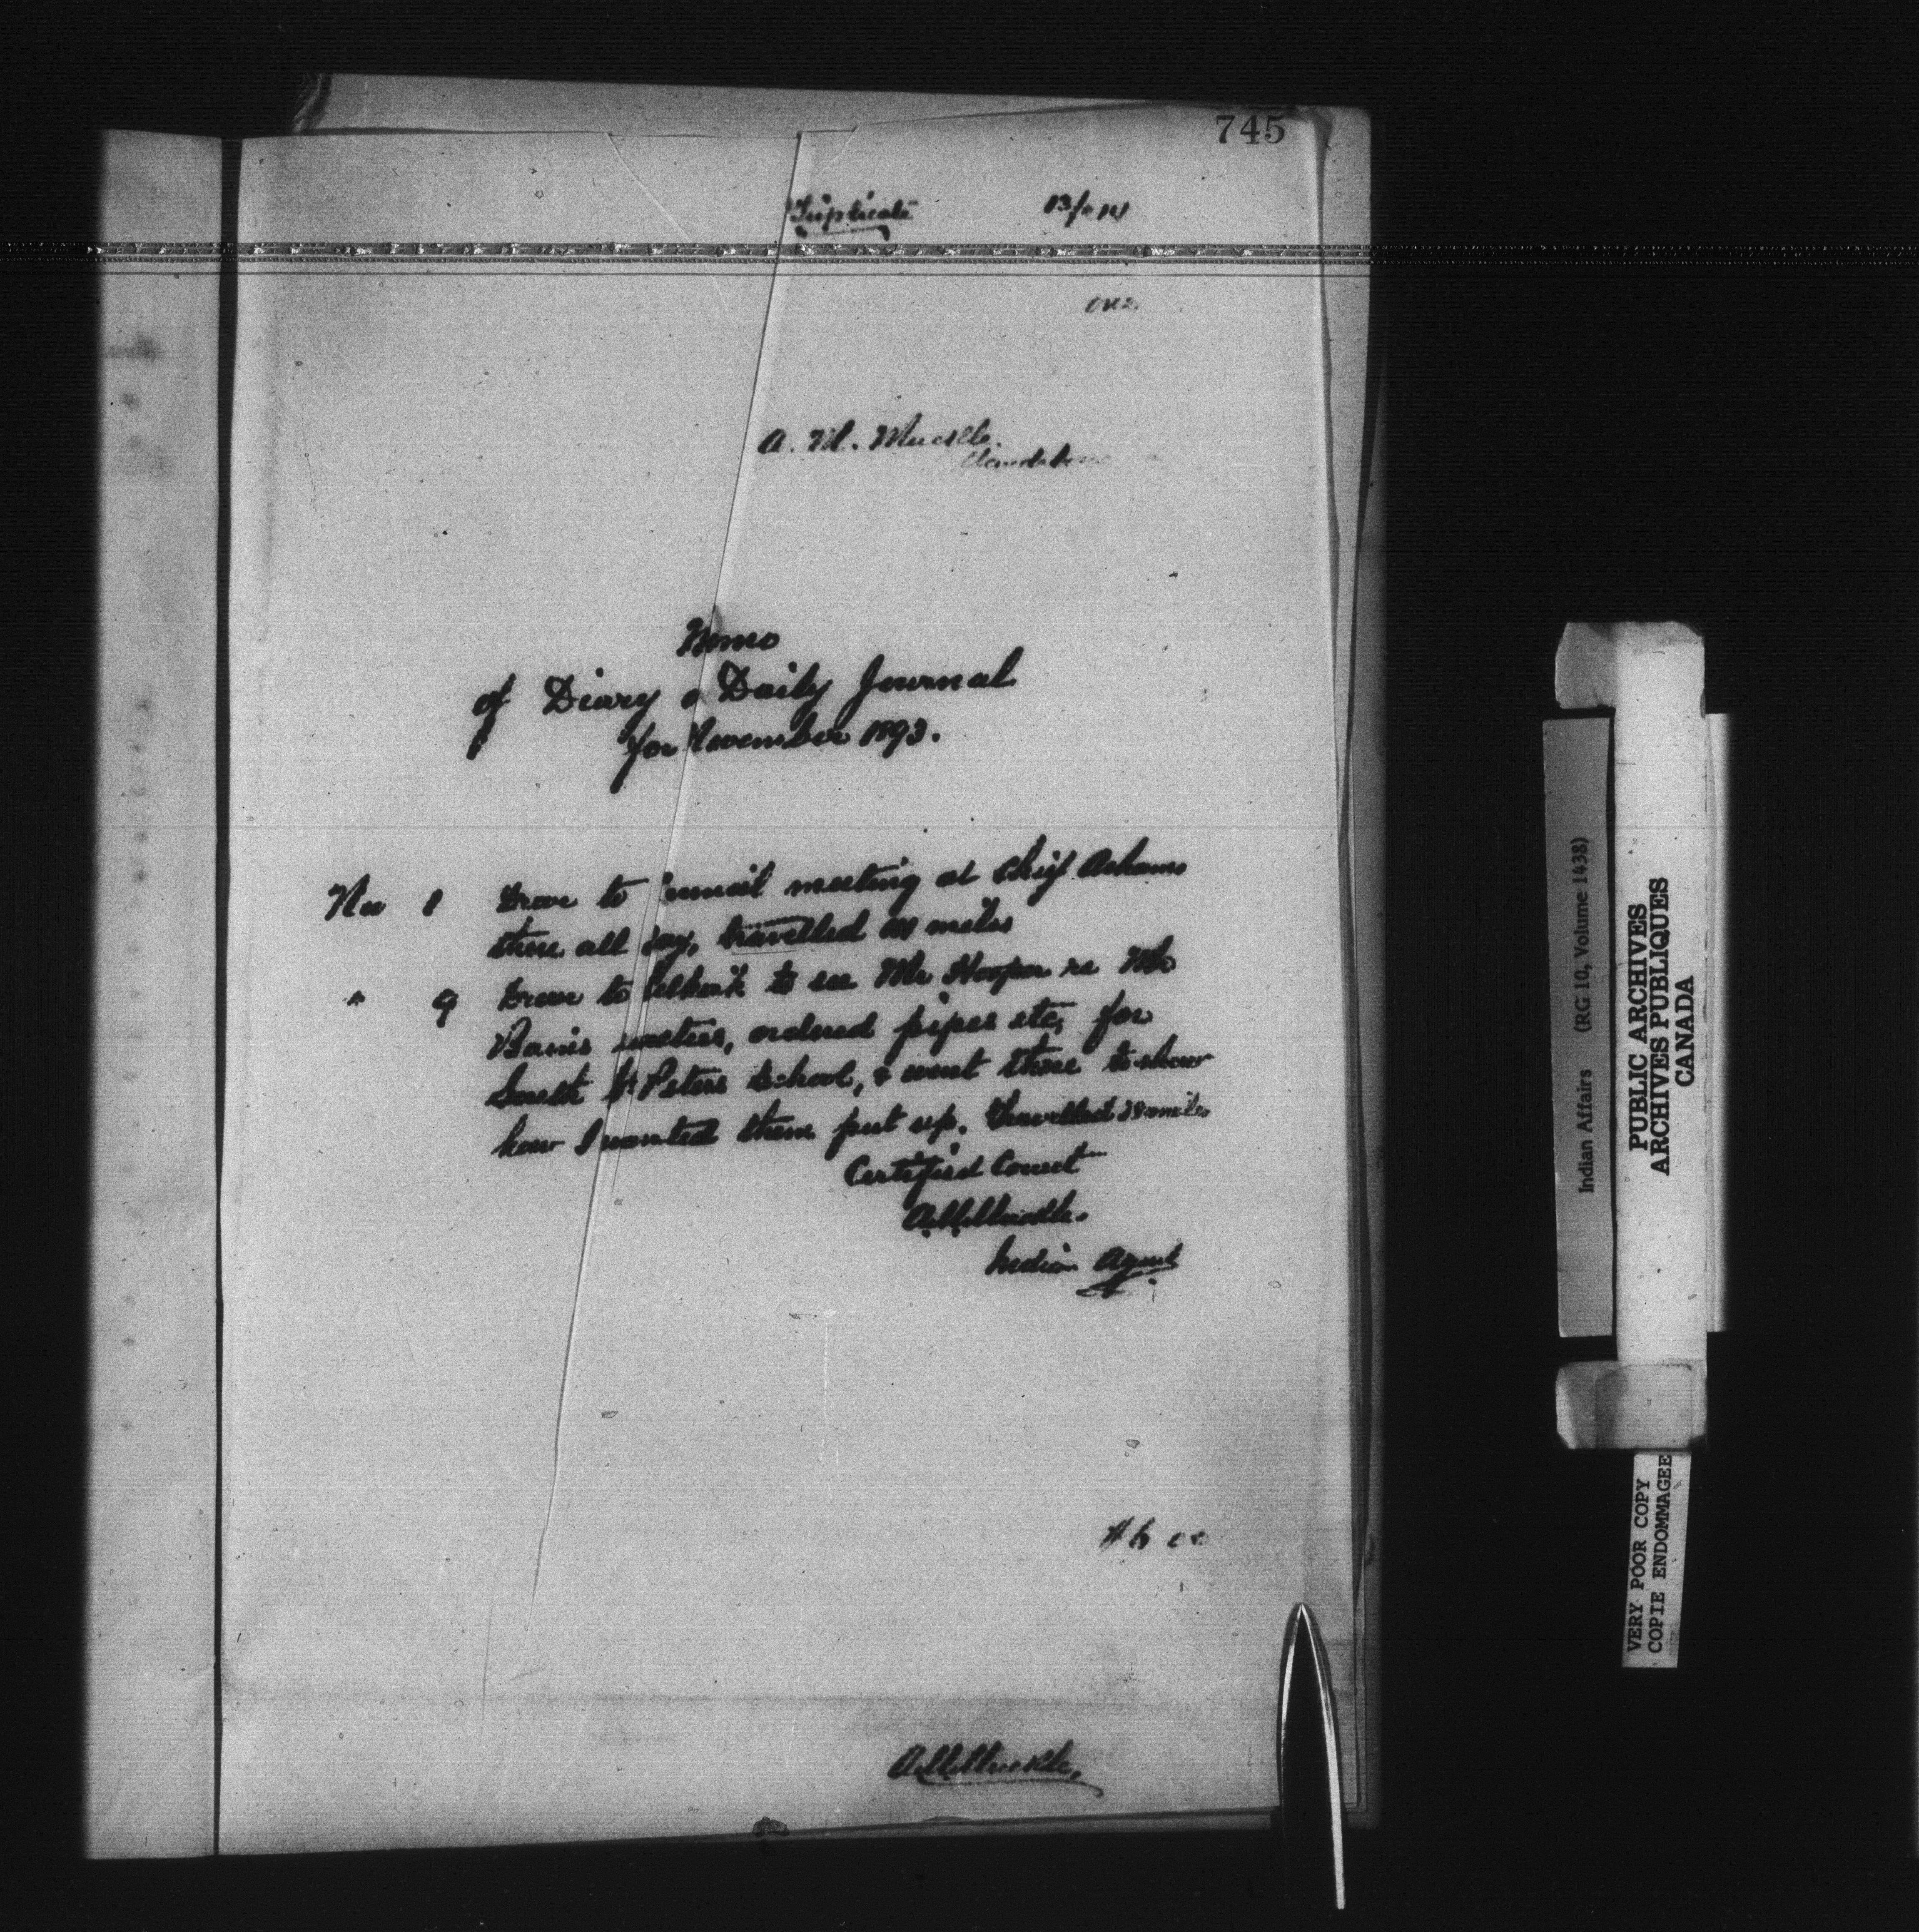 745
Triplicate
A. M. Muckle.
Clandeboye
Memo
of Diary & Daily Journal
for November 1893.
Nov 1 Drove to Council meeting at Chief Ashams
there all day, travelled miles
" 9 Drove to Selkirk to see Mr Hooper re Mr
matters, ordered pipes etc, for
South St Peters School, & went there to show
how I wanted them put up. travelled miles
Certified Correct
A. M. Muckle.
Indian Agent
A. M. Muckle.
Indian Affairs (RG 10, Volume 1438)
PUBLIC ARCHIVES
ARCHIVES PUBLIQUES
CANADA
VERY POOR COPY
COPIE ENDOMMAGEE